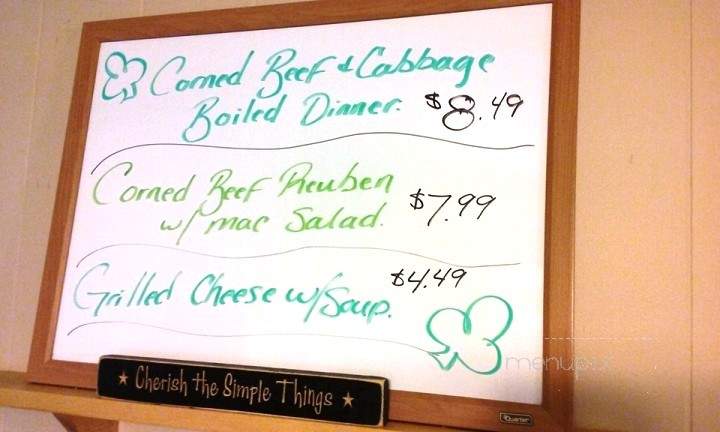 Corned Beef & Cabbage
Boiled Dinner. $8.49
Corned Beef Reuben
w/ mac Salad. $7.99
Grilled Cheese w/Soup. $4.49
★ Cherish the Simple Things ★
Quartet